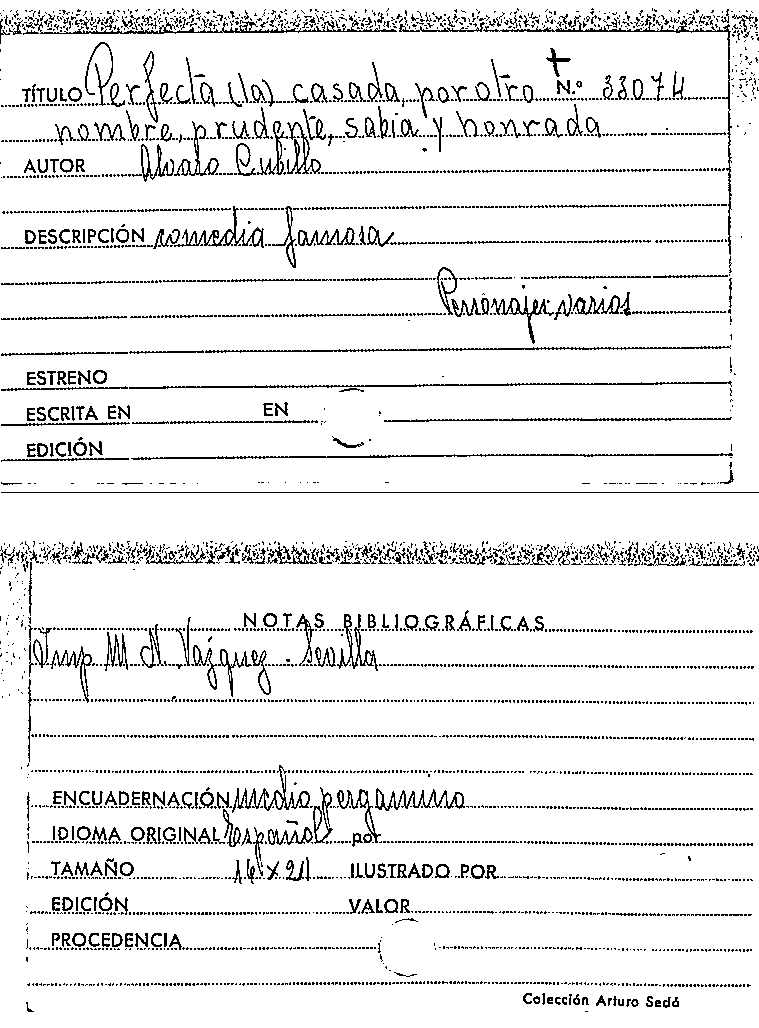 TÍTULO Perfecta (la) casada, por otro N.º 33074
nombre, prudente, sabia y honrada
AUTOR Alvaro Cubillo
DESCRIPCIÓN comedia famosa
Personajes varios
ESTRENO
ESCRITA EN EN
EDICIÓN
NOTAS BIBLIOGRÁFICAS
Imp M. N. Vazquez - Sevilla
ENCUADERNACIÓN medio pergamino
IDIOMA ORIGINAL Español por
TAMAÑO 16 x 21 ILUSTRADO POR
EDICIÓN VALOR
PROCEDENCIA
Colección Arturo Sedó